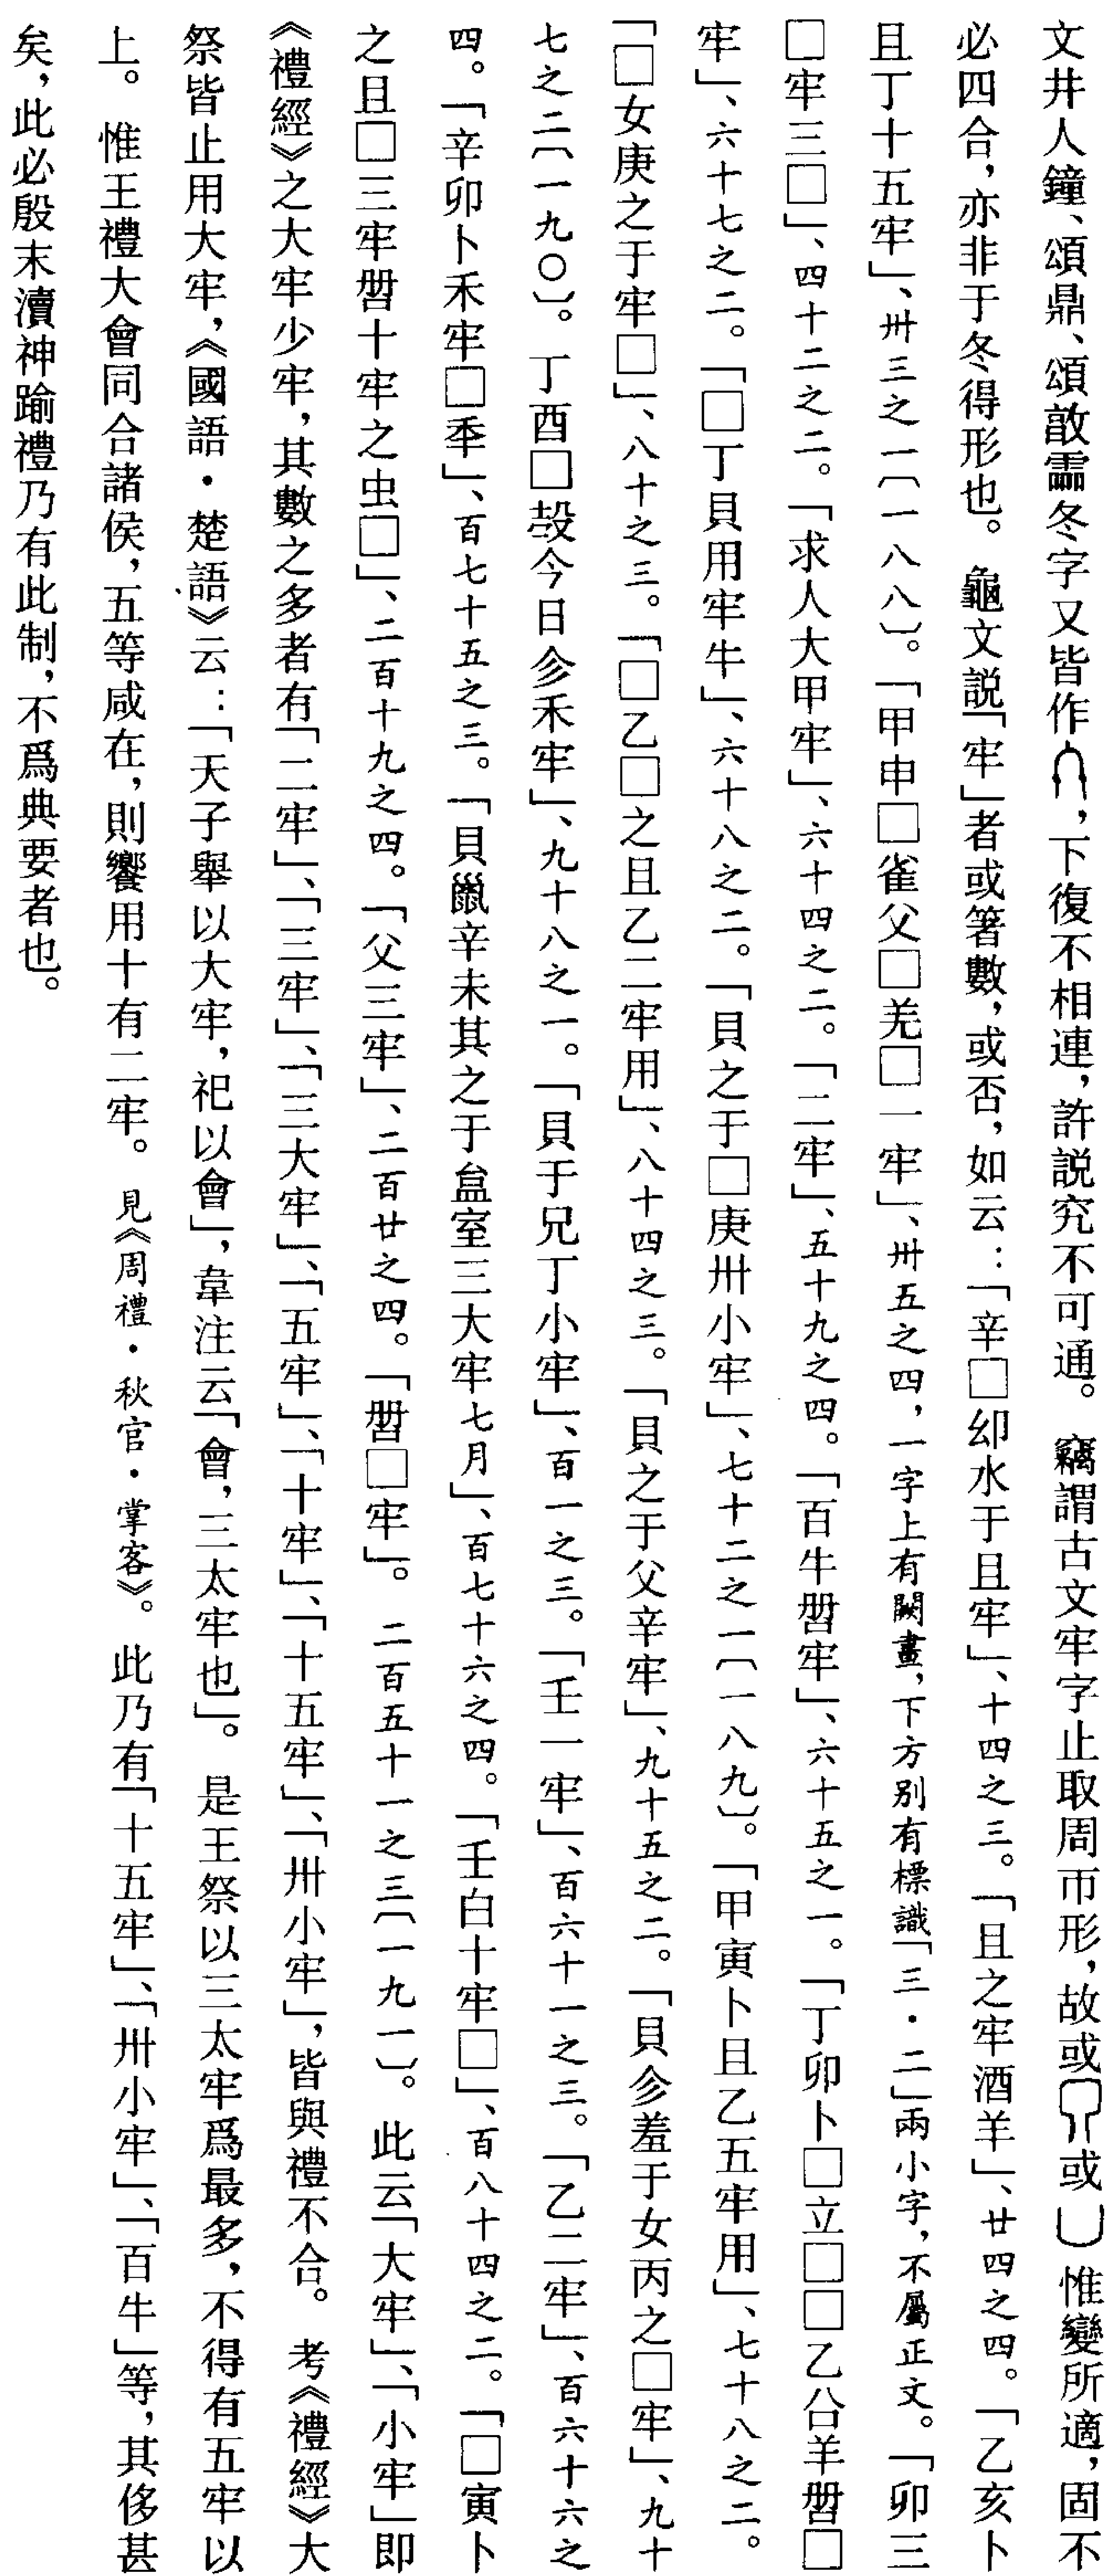 文井人鐘、頌鼎、頌㪘霝冬字又皆作，下復不相連，許説究不可通。竊謂古文牢字止取周帀形，故或或惟變所適，固不
必四合，亦非于冬得形也。龜文説「牢」者或箸數，或否，如云：「辛□卯水于且牢」、十四之三。「且之牢酒羊」、廿四之四。「乙亥卜
且丁十五牢」、卅三之一〔一八八〕。「甲申□雀父□羌□一牢」、卅五之四，一字上有闕畫，下方別有標識「三・二」兩小字，不屬正文。「卯三
□牢三□」、四十二之二。「求人大甲牢」、六十四之二。「二牢」、五十九之四。「百牛𠕋牢」、六十五之一。「丁卯卜□立□□乙㕣羊𠕋□
牢」、六十七之二。「□丁貝用牢牛」、六十八之二。「貝之于□庚卅小牢」、七十二之一〔一八九〕。「甲寅卜且乙五牢用」、七十八之二。
「□女庚之于牢□」、八十之三。「□乙□之且乙二牢用」、八十四之三。「貝之于父辛牢」、九十五之二。「貝㐱羞于女丙之□牢」、九十
七之二〔一九〇〕。丁酉□㱿今日㐱禾牢」、九十八之一。「貝于兄丁小牢」、百一之三。「壬一牢」、百六十一之三。「乙二牢」、百六十六之
四。「辛卯卜禾牢□秊」、百七十五之三。「貝辛未其之于盆室三大牢七月」、百七十六之四。「壬白十牢□」、百八十四之二。「□寅卜
之且□三牢𠕋十牢之虫□」、二百十九之四。「父三牢」、二百廿之四。「𠕋□牢」。二百五十一之三〔一九一〕。此云「大牢」、「小牢」即
《禮經》之大牢少牢，其數之多者有「二牢」、「三牢」、「三大牢」、「五牢」、「十牢」、「十五牢」、「卅小牢」，皆與禮不合。考《禮經》大
祭皆止用大牢，《國語・楚語》云：「天子舉以大牢，祀以會」，韋注云「會，三太牢也」。是王祭以三太牢爲最多，不得有五牢以
上。惟王禮大會同合諸侯，五等咸在，則饗用十有二牢。見《周禮・秋官・掌客》。此乃有「十五牢」、「卅小牢」、「百牛」等，其侈甚
矣，此必殷末瀆神踰禮乃有此制，不爲典要者也。